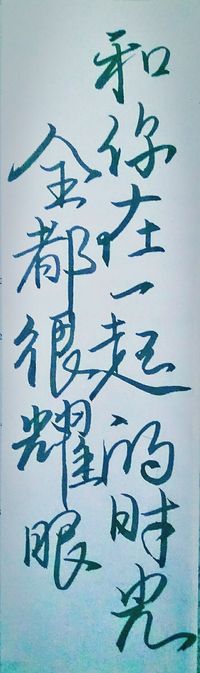 和你在一起的时光
全都很耀眼